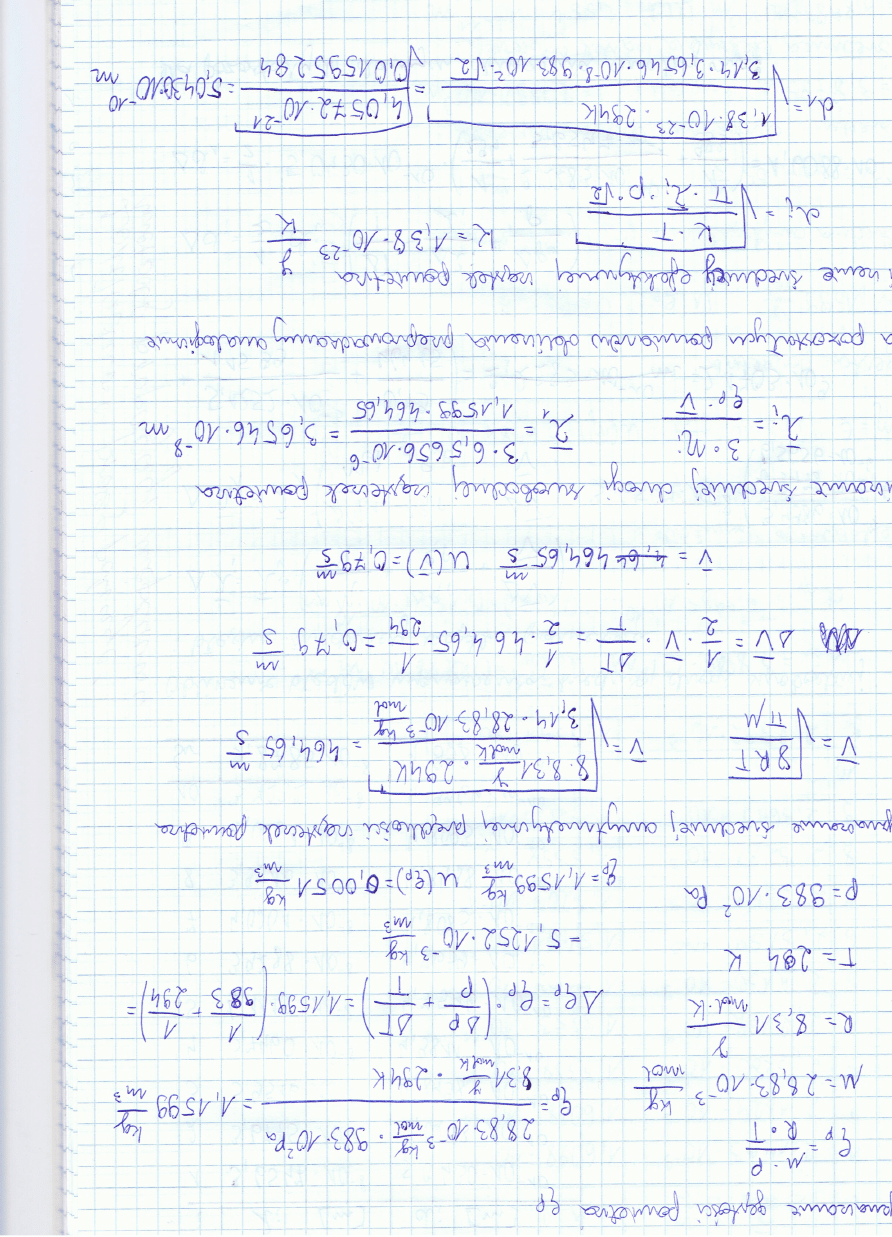 gęstości powietrza ρp
ρp = M · p / R · T    ρp = 28,83·10⁻³ kg/mol · 983·10² Pa / 8,31 J/mol K · 294K = 1,1599 kg/m³
M = 28,83·10⁻³ kg/mol
R = 8,31 J/mol·K    Δρp = ρp · (Δp/p + ΔT/T) = 1,1599·(1/983 + 1/294) =
T = 294 K    = 5,1252·10⁻³ kg/m³
p = 983·10² Pa    ρp = 1,1599 kg/m³    u(ρp) = 0,0051 kg/m³
średniej arytmetycznej prędkości cząsteczek powietrza
V̄ = √(8RT / πM)    V̄ = √(8·8,31 J/mol K · 294K / 3,14 · 28,83·10⁻³ kg/mol) = 464,65 m/s
ΔV̄ = 1/2 · V̄ · ΔT/T = 1/2 · 464,65 · 1/294 = 0,79 m/s
V̄ = 464,65 m/s    u(V̄) = 0,79 m/s
średniej drogi swobodnej cząsteczek powietrza
λ̄i = 3·ηi / ρp·V̄    λ̄1 = 3·6,5656·10⁻⁶ / 1,1599·464,65 = 3,6546·10⁻⁸ m
pozostałych pomiarów obliczenia przeprowadzamy analogicznie
średniej efektywnej cząstek powietrza
di = √(k·T / π·λ̄i·p·√2)    K = 1,38·10⁻²³ J/K
d1 = √(1,38·10⁻²³ · 294K / 3,14·3,6546·10⁻⁸·983·10²·√2) = √(4,0572·10⁻²¹ / 0,01595284) = 5,0430·10⁻¹⁰ m